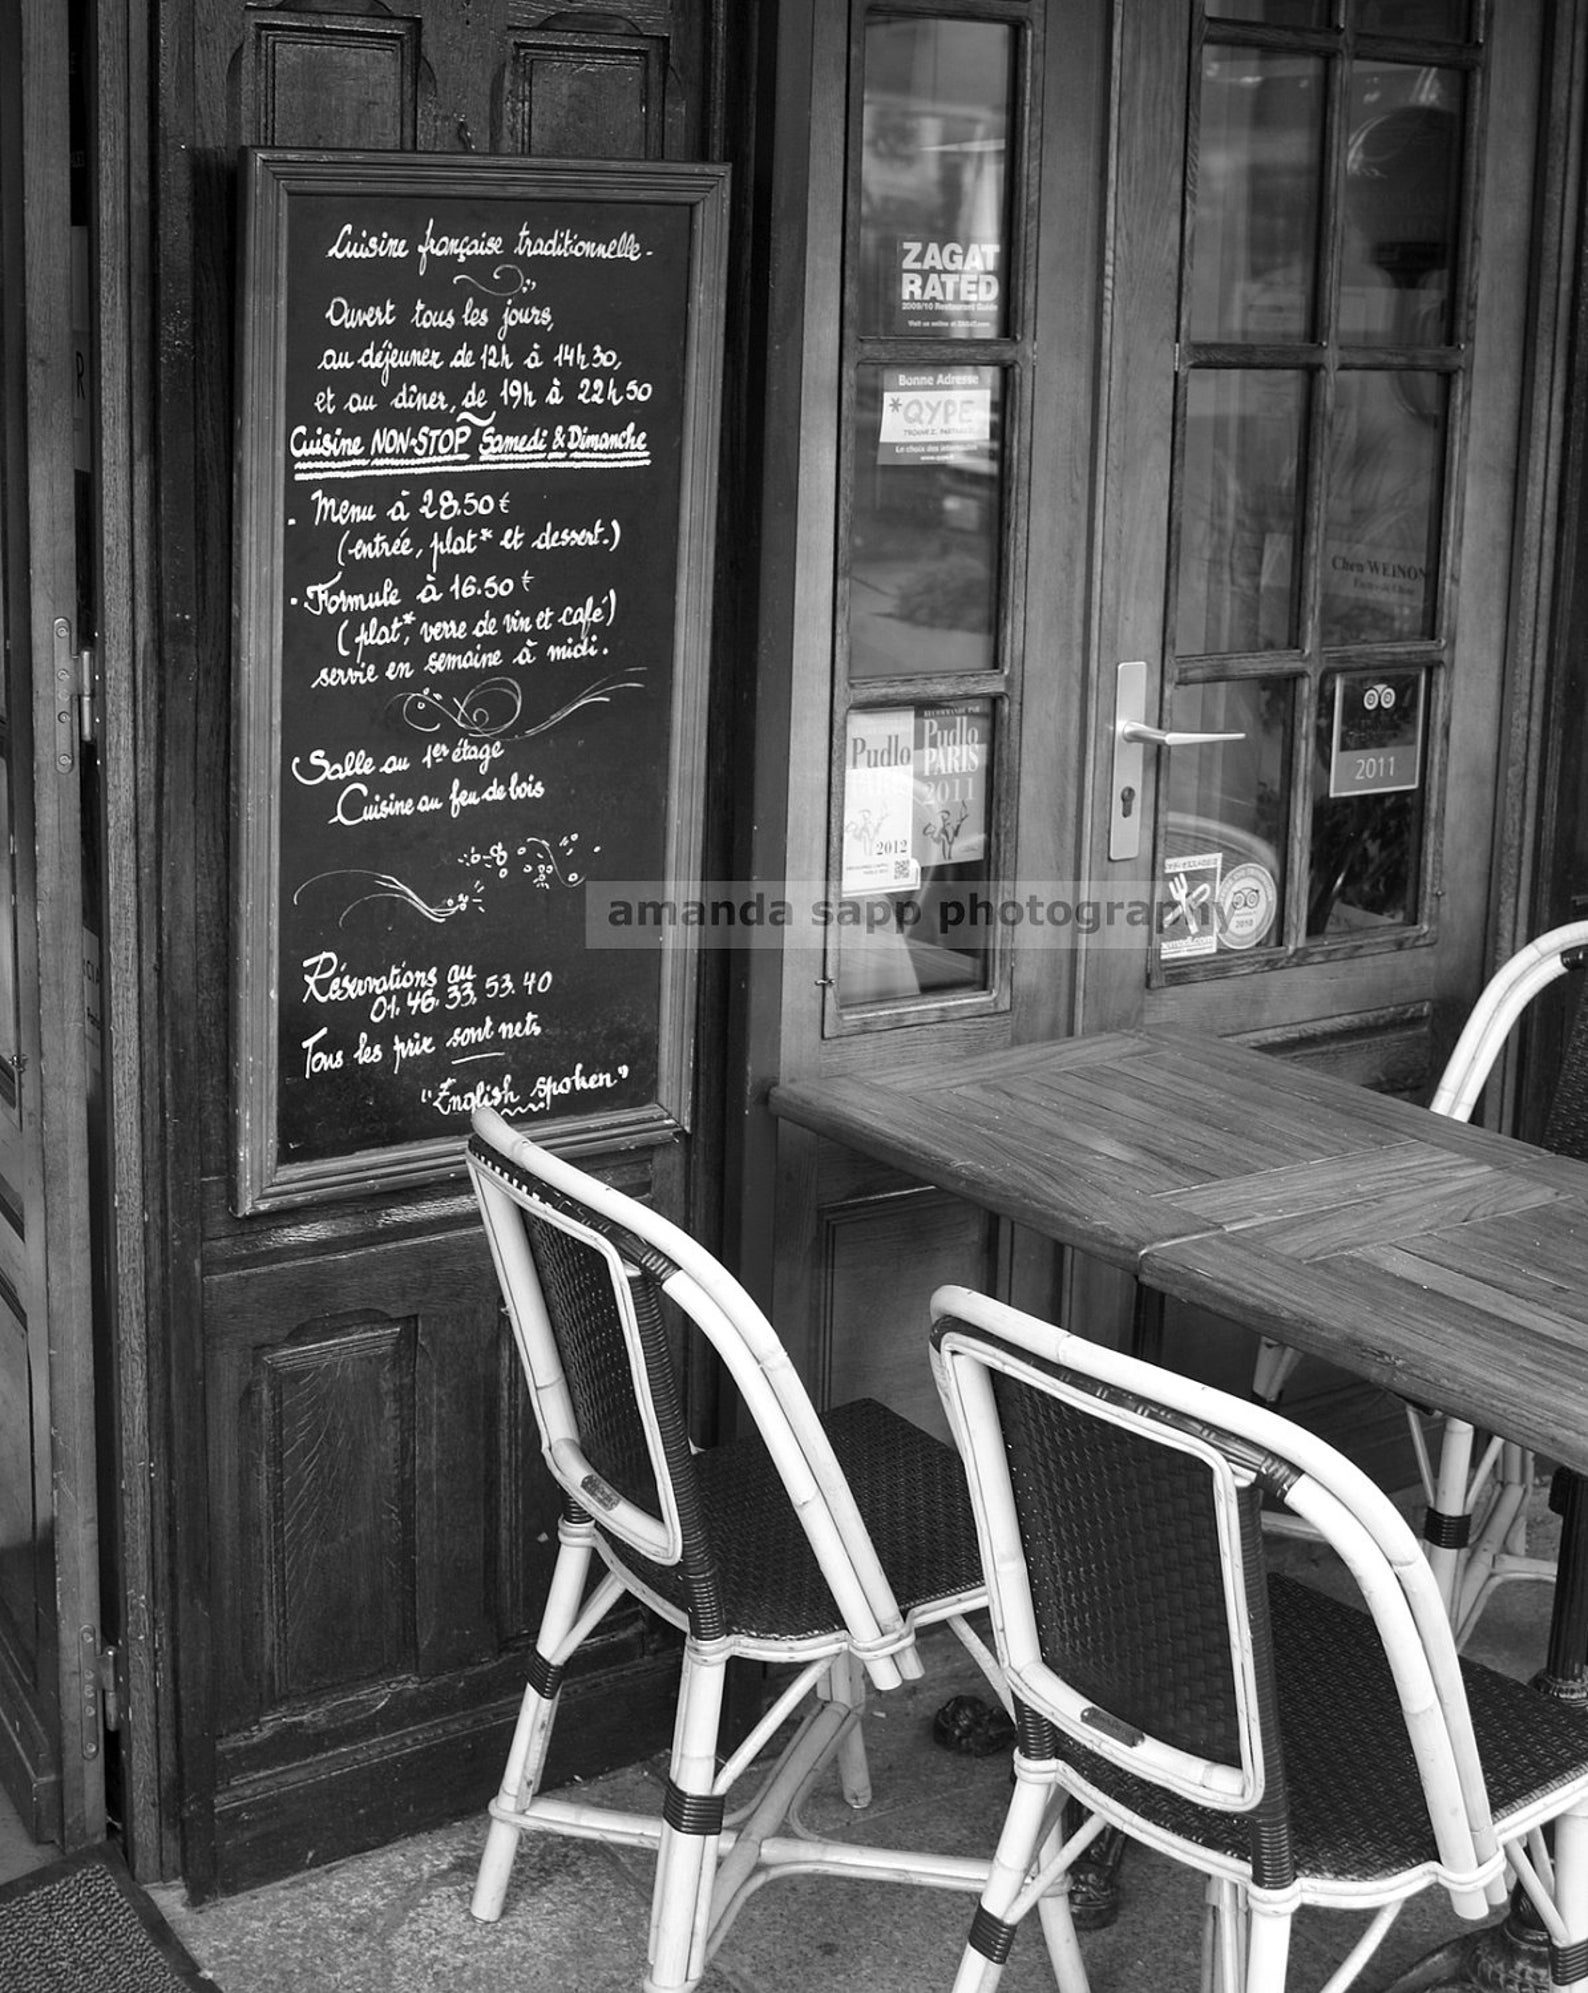 Cuisine française traditionnelle -
Ouvert tous les jours,
au déjeuner de 12h à 14h30,
et au dîner, de 19h à 22h50
Cuisine NON-STOP Samedi & Dimanche
. Menu à 28.50 €
(entrée, plat* et dessert.)
. Formule à 16.50 €
(plat*, verre de vin et café)
servie en semaine à midi.
Salle au 1er étage
Cuisine au feu de bois
Réservations au
01.46.33.53.40
Tous les prix sont nets
"English spoken"
ZAGAT
RATED
2009/10 Restaurant Guide
Visit us online at ZAGAT.com
Bonne Adresse
*QYPE
Le choix des internautes
www.qype.fr
Pudlo
PARIS
2012
RECOMMANDÉ PAR
Pudlo
PARIS
2011
Chen WEINON
2011
2010
amanda sapp photography